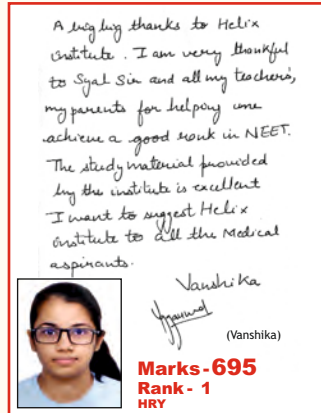 A big big thanks to Helix
institute. I am very thankful
to Syal Sir and all my teachers,
my parents for helping me
achieve a good rank in NEET.
The study material provided
by the institute is excellent
I want to suggest Helix
institute to all the Medical
aspirants.
Vanshika
(Vanshika)
Marks-695
Rank- 1
HRY